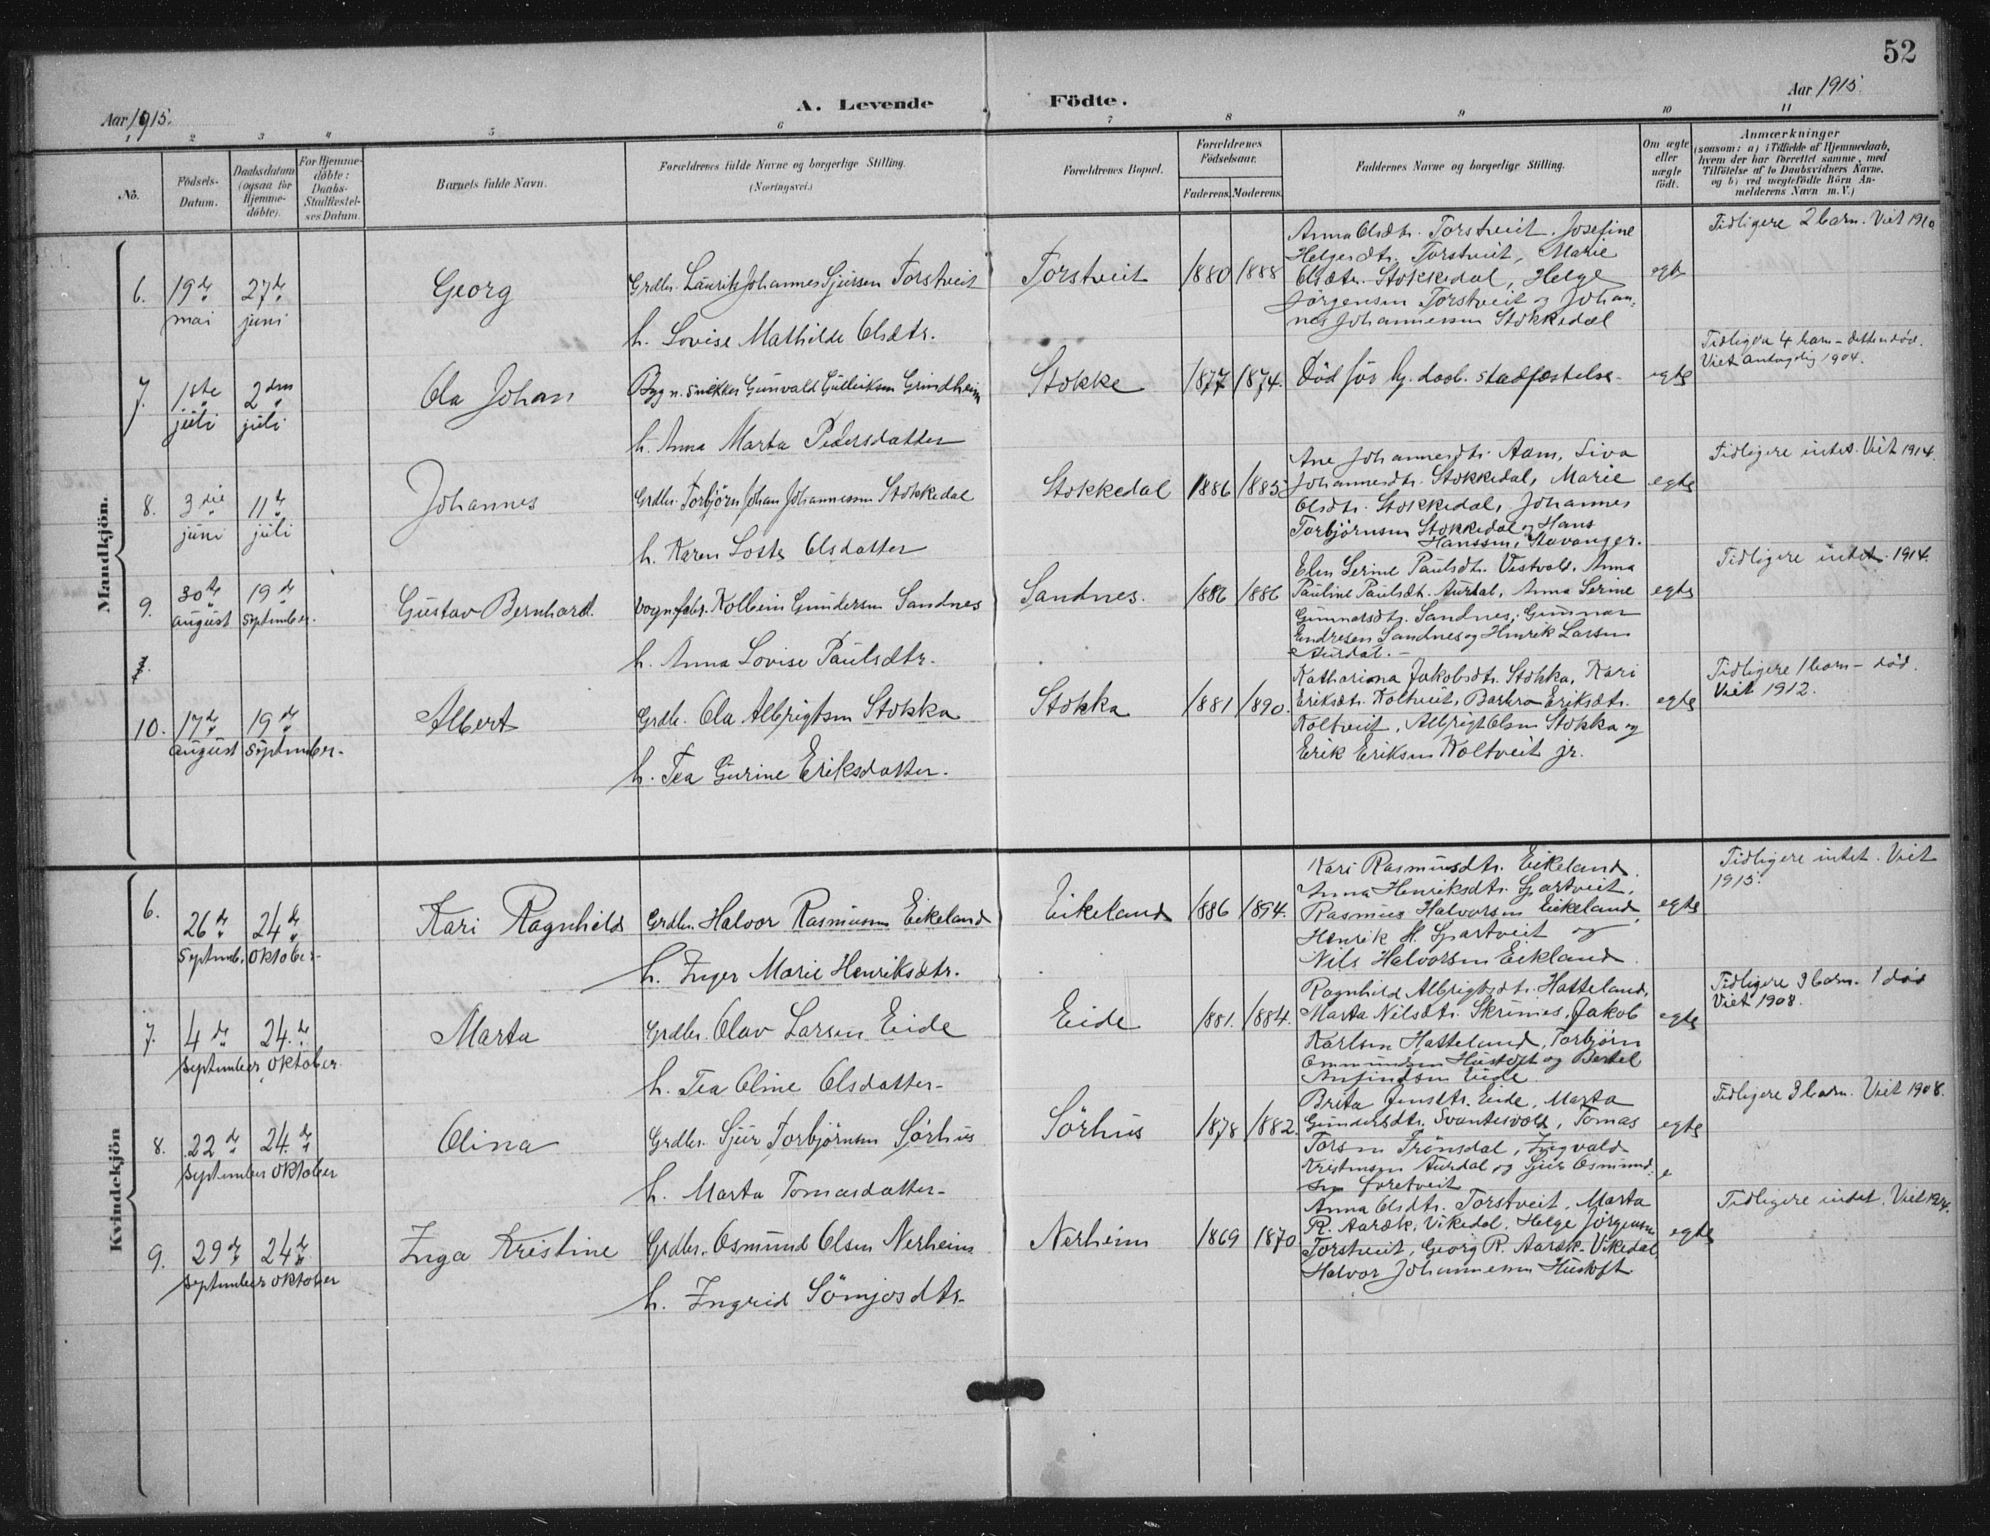 52
Aar 1915.
A. Levende Födte.
Aar 1915.
1 2 3 4 5 6 7 8 9 10 11
No.
Födsels-Datum.
Daabsdatum (ogsaa for Hjemme-döbte).
For Hjemme-döbte: Daabs-Stadfestel-ses Datum.
Barnets fulde Navn.
Forældrenes fulde Navne og borgerlige Stilling.
(Næringsvei.)
Forældrenes Bopæl.
Forældrenes Födselsaar.
Faderens. Moderens.
Faddernes Navne og borgerlige Stilling.
Om ægte eller uægte födt.
Anmærkninger
(saasom: a) i Tilfælde af Hjemmedaab, hvem der har forrettet samme, med Tilföielse af to Daabsvidners Navne, og b) ved uægtefödte Börn An-melderens Navn m. V.)
Mandkjön.
6. 19de mai 27de juni
Georg
Grdbr. Laurits Johannes Sjursen Torstveit
h. Lovise Mathilde Olsdtr.
Torstveit
1880 1888
Anna Olsdtr. Torstveit, Josefine
Helgesdtr. Torstveit, Marie
Olsdtr. Stokkedal, Helge
Jörgensen Torstveit og Johan-
nes Johannessen Stokkedal
egte
Tidligere 2 barn. Viet 1910
7. 1ste juli 2den juli
Ola Johan
Bygn. snekker Gunvald Gulleiksen Grindheim
h. Anna Marta Pedersdatter
Stokke
1877 1874.
Död før hj. daab. stadfæstelse.
egte
Tidligere 4 barn - dette død.
Viet antagelig 1904.
8. 3die juni 11te juli
Johannes
Grdbr. Torbjörn Johan Johannessen Stokkedal
h. Karen Lotte Olsdatter
Stokkedal
1886 1885
Ane Johannesdtr. Aam, Siva
Johannesdtr. Stokkedal, Marie
Olsdtr. Stokkedal, Johannes
Torbjørnsen Stokkedal og Hans
Hanssen, Stavanger.
egte
Tidligere intet. Viet 1914.
9. 30te august 19de September.
Gustav Bernhard.
Vognfabr. Kolbein Gundersen Sandnes
h. Anna Lovise Paulsdtr.
Sandnes.
1886 1886
Elen Serine Paulsdtr. Vestvold, Anna
Pauline Paulsdtr. Aurdal, Anna Serine
Gunnarsdtr. Sandnes, Gunnar
Endresen Sandnes og Henrik Larsen
Aurdal. -
egte
Tidligere intet. 1914.
10. 17de august 19de September.
Albert
Grdbr. Ola Albrigtsen Stokka
h. Tea Gurine Eriksdatter.
Stokka
1881 1890.
Katharina Jakobsdtr. Stokka, Kari
Eriksdtr. Koltveit, Barbro Eriksdtr.
Koltveit, Albrigt Olsen Stokka og
Erik Eriksen Koltveit jr.
egte
Tidligere 1 barn - død.
Viet 1912.
Kvindekjön
6. 26de Septemb. 24de Oktober.
Kari Ragnhild
Grdbr. Halvor Rasmussen Eikeland
h. Inger Marie Henriksdtr.
Eikeland
1886 1894.
Kari Rasmusdtr. Eikeland.
Anna Henriksdtr. Gjartveit,
Rasmus Halvorsen Eikeland,
Henrik H. Gjartveit og
Nils Halvorsen Eikland.
egte
Tidligere intet. Viet
1915.
7. 4de September 24.de Oktober.
Marta
Grdbr. Olav Larsen Eide
h. Tea Oline Olsdatter.
Eide
1881. 1884.
Ragnhild Albrigtsdtr. Hatteland,
Marta Nilsdtr. Skrunes, Jakob
Karlsen Hatteland, Torbjörn
Ommundsen Hustoft og Bertel
Anfindsen Eide.
egte
Tidligere 3 barn. 1 død
Viet 1908.
8. 22de September 24.de Oktober
Olina
Grdbr. Sjur Torbjörnsen Sörhus
h. Marta Tomasdatter.
Sörhus
1878 1882.
Brita Jensdtr. Eide, Marta
Gundersdtr. Svantesvold, Tomas
Torsen Trönsdal, Ingvald
Kristensen Aurdal og Sjur Osmund-
sen
egte
Tidligere 3 barn. Viet 1908.
9. 29de September 24de Oktober
Inga Kristine
Grdbr. Osmund Olsen Nerheim
h. Ingrid
Nerheim
1869 1870
Anna Olsdtr. Torstveit, Marta
R. Aaræk, Vikedal, Helge Jörgensen
Torstveit, Georg R. Aaræk Vikedal,
Halvor Johannessen Hustoft
egte
Tidligere intet. Viet